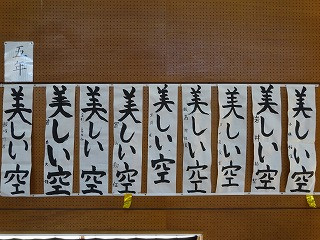 五年
美しい空
美しい空
美しい空
美しい空
美しい空
美しい空
美しい空
美しい空
美しい空